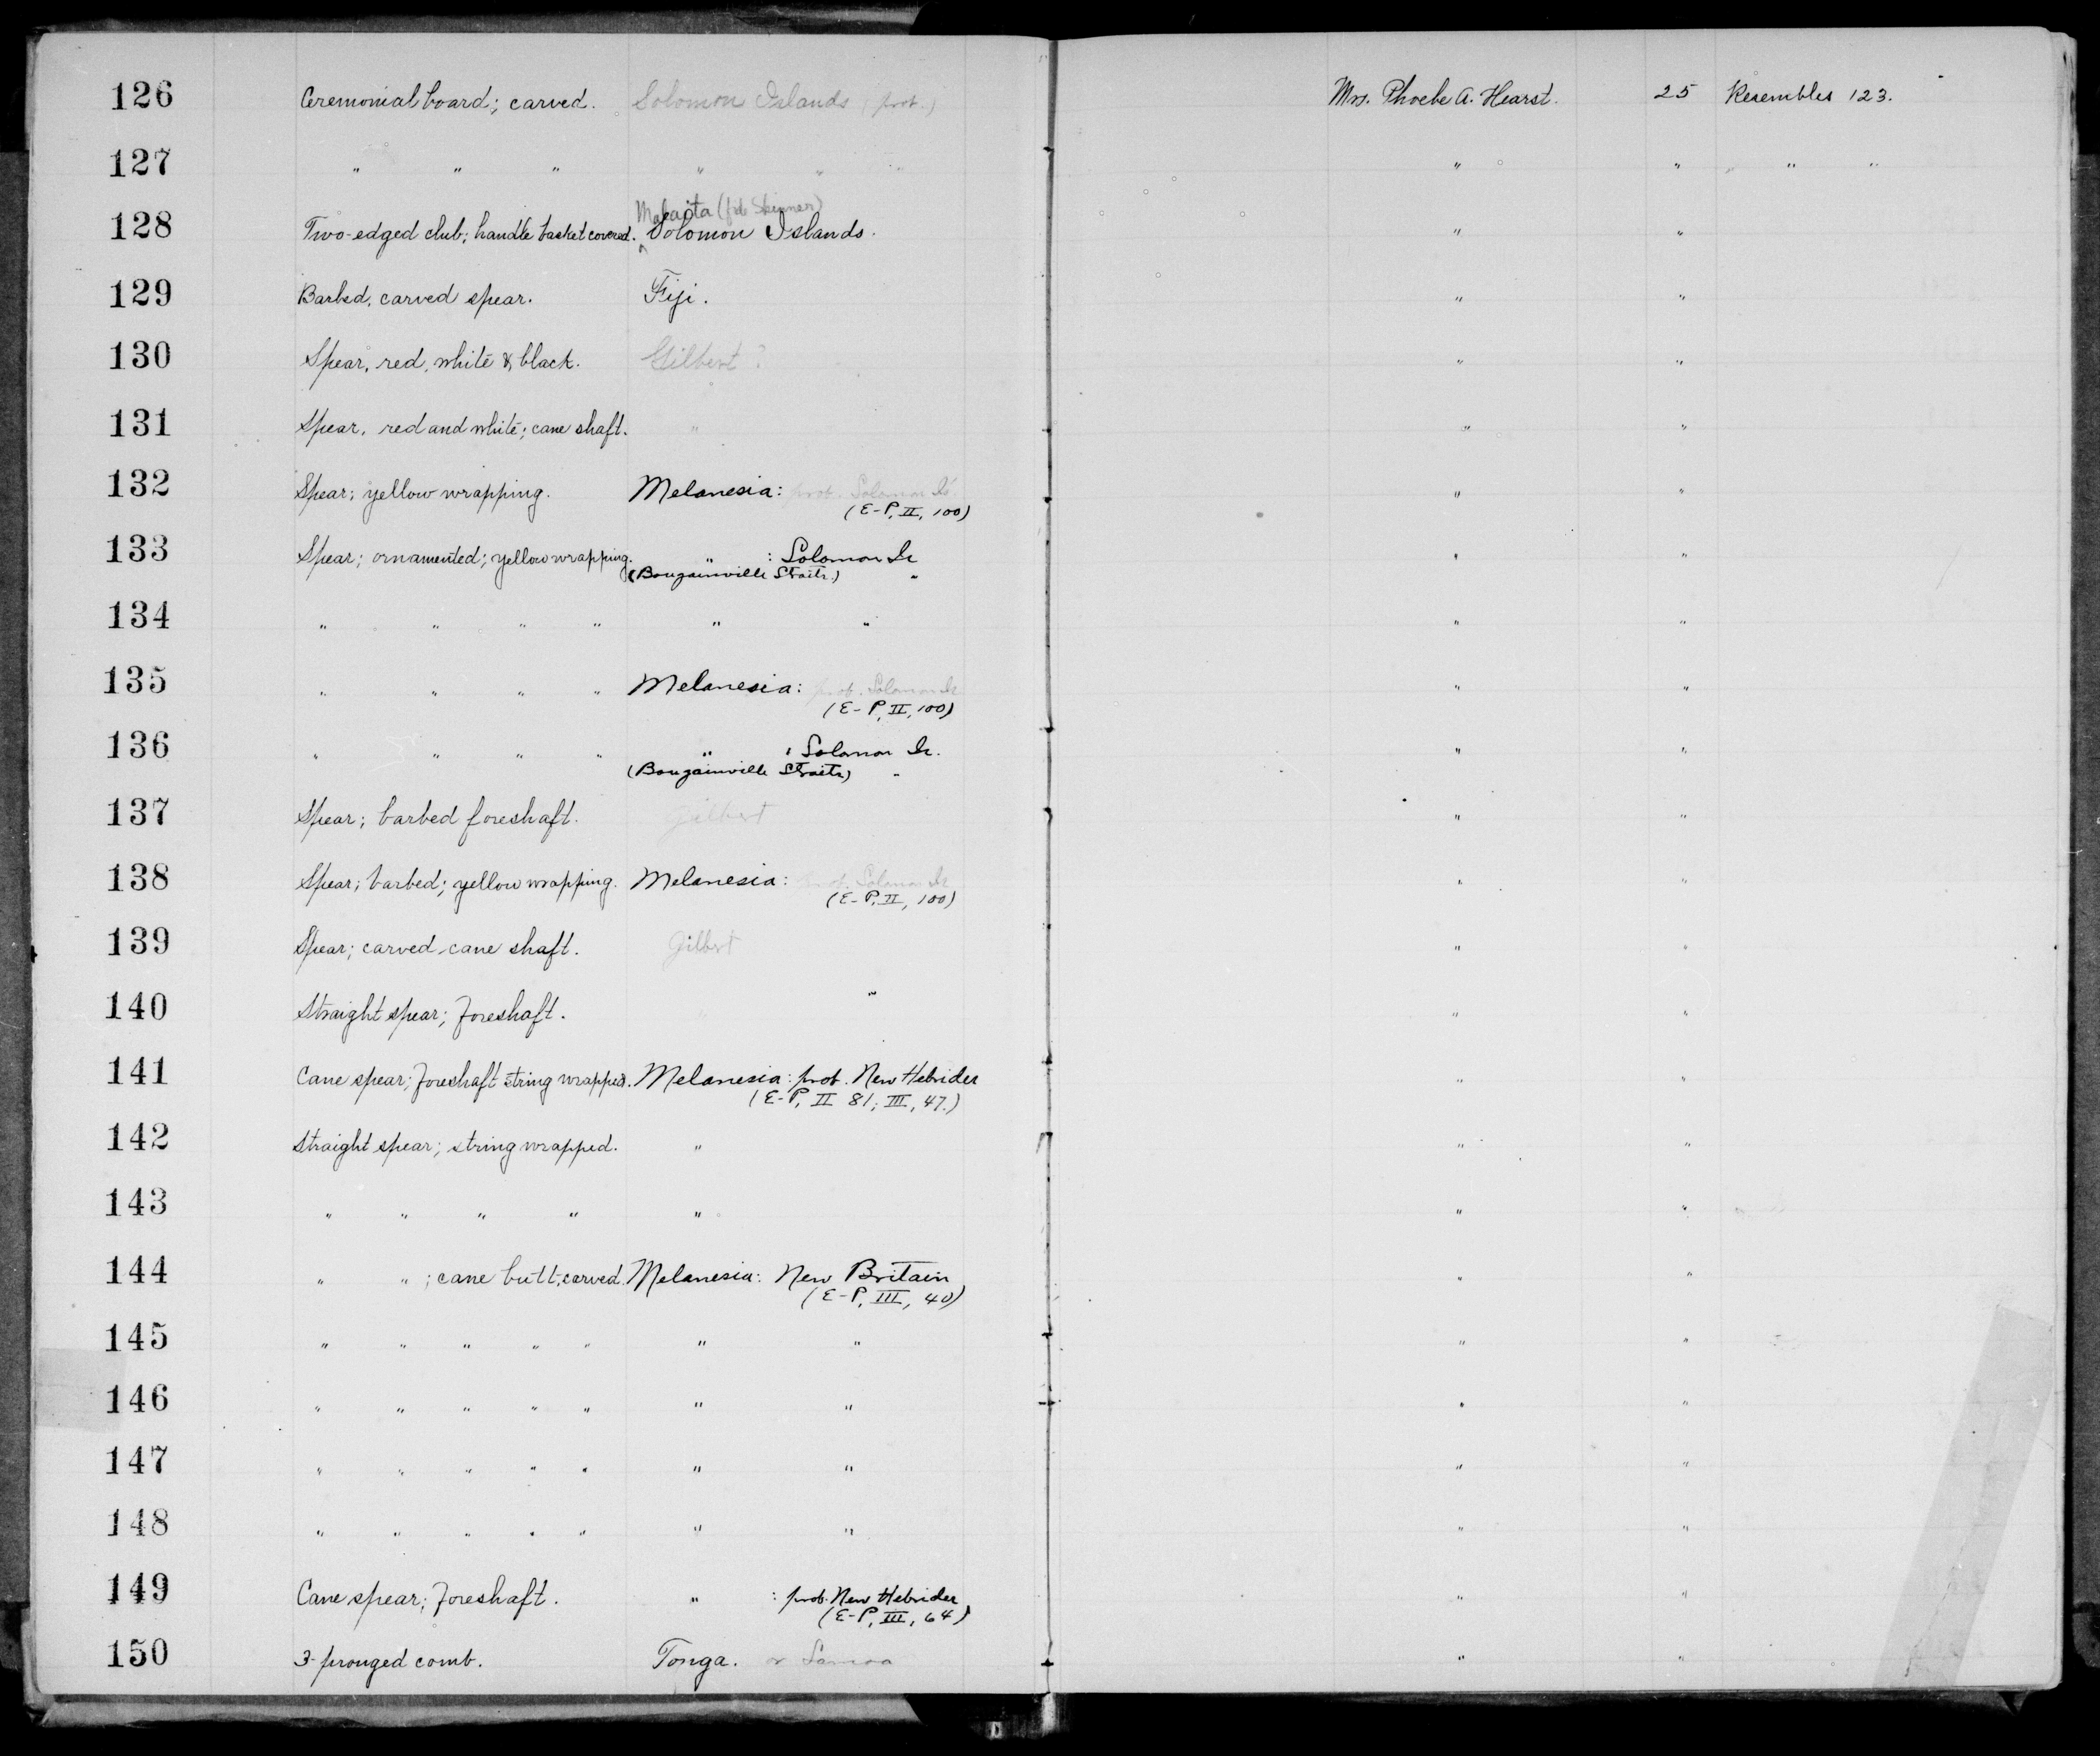 126 Ceremonial board; carved. Solomon Islands (prob.) Mrs. Phoebe A. Hearst. 25 Resembles 123.
127 " " " " " " " " " " "
Malaita (fide Skinner)
128 Two-edged club; handle basket covered. ^ Solomon Islands. " "
129 Barbed, carved spear. Fiji. " "
130 Spear, red, white & black. Gilbert? " "
131 Spear, red and white; cane shaft. " " "
132 Spear; yellow wrapping. Melanesia: prob. Solomon Is " "
(E-P, II, 100)
133 Spear; ornamented; yellow wrapping. " : Solomon Is " "
(Bougainville Straits) "
134 " " " " " " " "
135 " " " " Melanesia: prob. Solomon Is " "
(E-P, II, 100)
136 " " " " " : Solomon Is. " "
(Bougainville Straits) "
137 Spear; barbed foreshaft. Gilbert " "
138 Spear; barbed; yellow wrapping. Melanesia: prob. Solomon Is " "
(E-P, II, 100)
139 Spear; carved cane shaft. Gilbert " "
140 Straight spear; foreshaft. " " "
141 Cane spear; foreshaft string wrapped. Melanesia: prob. New Hebrides " "
(E-P, II 81; III, 47.)
142 Straight spear; string wrapped. " " "
143 " " " " " " "
144 " " ; cane butt, carved. Melanesia: New Britain " "
(E-P, III, 40)
145 " " " " " " " " "
146 " " " " " " " " "
147 " " " " " " " " "
148 " " " " " " " " "
149 Cane spear; foreshaft. " : prob. New Hebrides " "
(E-P, III, 64)
150 3-pronged comb. Tonga. or Samoa " "